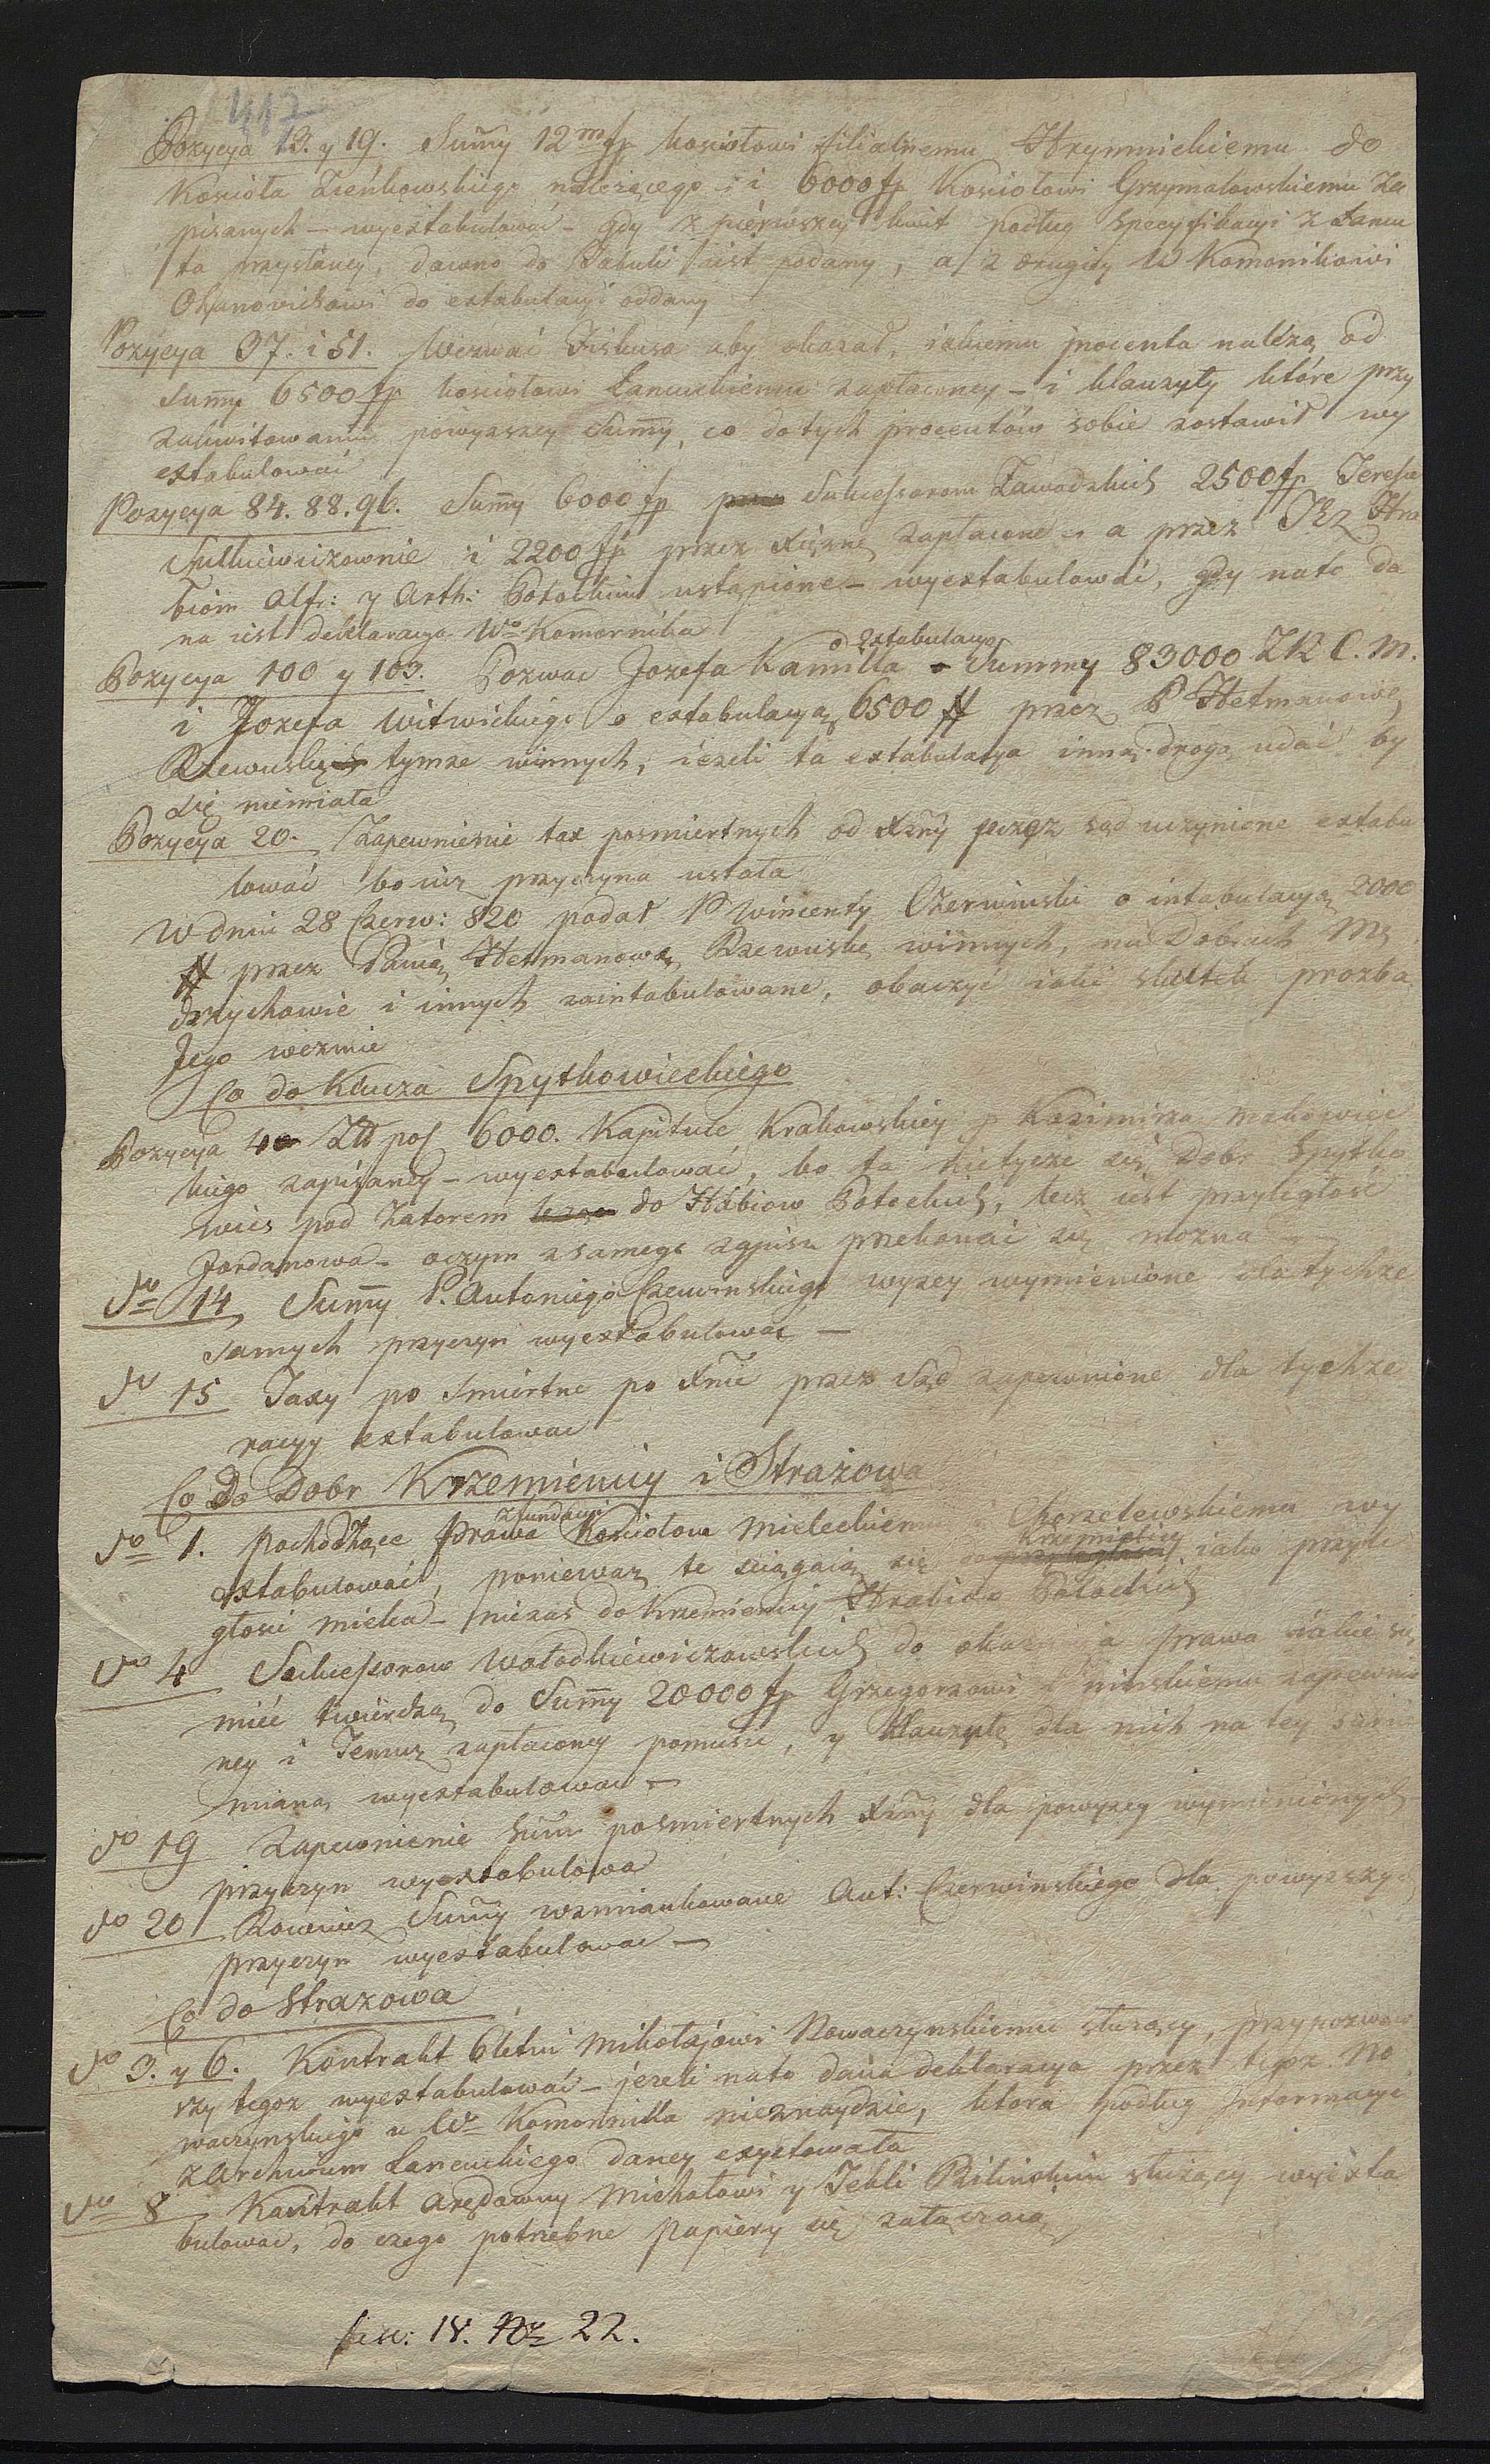 417
Pozycya 13. y 19. Sum̄y 12 m fp kosciołowi filialnemu Hrzymnickiemu do
Koscioła Zieńkowskiego należącego i 6000 fp Kosciołowi Grzymałowskiemu za
pisanych – wyextabulować – gdy z piérwszey kwit podług specyfikacyi z Łancu
ta przysłaney, dawno do Tabuli iest podany, a z drugiey W Komonikowi
do extabulacyi oddany
Pozycya 37. i 51. Wezwać Fiskusa aby okazał, iakiemu procenta należą od
Sum̄y 6500 fp kosciołowi Łancuckiemu zapłaconey – i klauzyły które przy
zakwitowaniu powyzszey Sum̄y, co do tych procentów sobie zostawił wy
extabulować
Pozycya 84. 88. 96. Sum̄y 6000 fp Sukcessorom Zawadzkich 2500 fp Teressie
Sutkiewiczownie i 2200 fp przez Xiężnę zapłacone – a przez JWz Hra
biom Alf: y Arth: Potockim ustąpione – wyextabulować, gdy na to da
na iest deklaracya Wo Komornika
Pozycya 100 y 103. Pozwać Jozefa Kamilla o extabulacyą Summy 83000 ZR C. M.
i Jozefa Witwickiego o extabulacyą 6500 # przez P Hetmanowę
Rzewuskę tymze winnych, iezeli ta extabulacya inną drogą udać by
się niemiała
Pozycya 20. Zapewnienie tax posmiertnych od Xzny przez sąd uczynione extabu
lować bo iuz przyczyna ustała
W dniu 28 Czerw: 820 podał P Wincenty Czerwinski o intabulacyą 2000
# przez Panią Hetmanowę Rzewuskę winnych, na Dobrach Mę
drzychowie i innych zaintabulowane, obaczyć iaki skutek prozba
Jego wezmie
Co do Klucza Spytkowieckiego
Pozycya 4 Złł pol 6000. Kapitule Krakowskiey p Kazimirza Makowiec
kiego zapisaney – wyextabulować, bo ta nietycze się Dobr Spytko
wice pod Zatorem do Hrabiow Potockich, lecz iest przyległość
Jordanowa – oczym z samego zapisu przekonać się mozna
No 14 Sum̄y P. Antoniego Czerwinskiego wyzey wymienione dla tychze
samych przyczyn wyextabulować –
No 15 Taxy po smiertne po Xnie przez Sąd zapewnione dla tychze
racyy extabulować
Co do Dobr Krzemienicy i Strażowa
No 1. Pochodzące z fundacyi prawa Kosciołowi Mieleckiemu Chorzelewskiemu wy
extabulować, poniewaz te sciągaią się do Krzemienicy iako przyle
głosci Mielca – niezas do Krzemienicy Hrabiow Potockich
No 4 Sukcessorow Wołodkiewiczowskich do okazania prawa iakie so
mieć twierdzą do Sum̄y 20000 fp Grzegorzowi ninskiemu zapewnio
ney i Temuz zapłaconey pomusić, y klauzylę dla nich na tey Sumie
mianą wyextabulować –
No 19 Zapewnienie Sum posmiertnych Xzny dla powyzey wymienionych
przyczyn wyextabulowa
No 20 Rowniez Sum̄y wzmiankowane Ant: Czerwinskiego dla powyzszych
przyczyn wyextabulować –
Co do Strazowa
No 3. y 6. Kontrakt 6letni Mikołajowi Nowaczynskiemu słuzący, przypozwaw
szy tegoz wyextabulować – jezeli nato dana deklaracya przez tegoz No
waczynskiego u Wo Komornika nieznaydzie, ktora podług informacyi
z Archiwum Łancuckiego daney exystowała
No 8 Kontrakt Arędowny Michałowi y Tekli Bilinskim słuzący wyexta
bulować, do czego potrzebne Papiery się załączaią
fasc: 18. Nr 22.